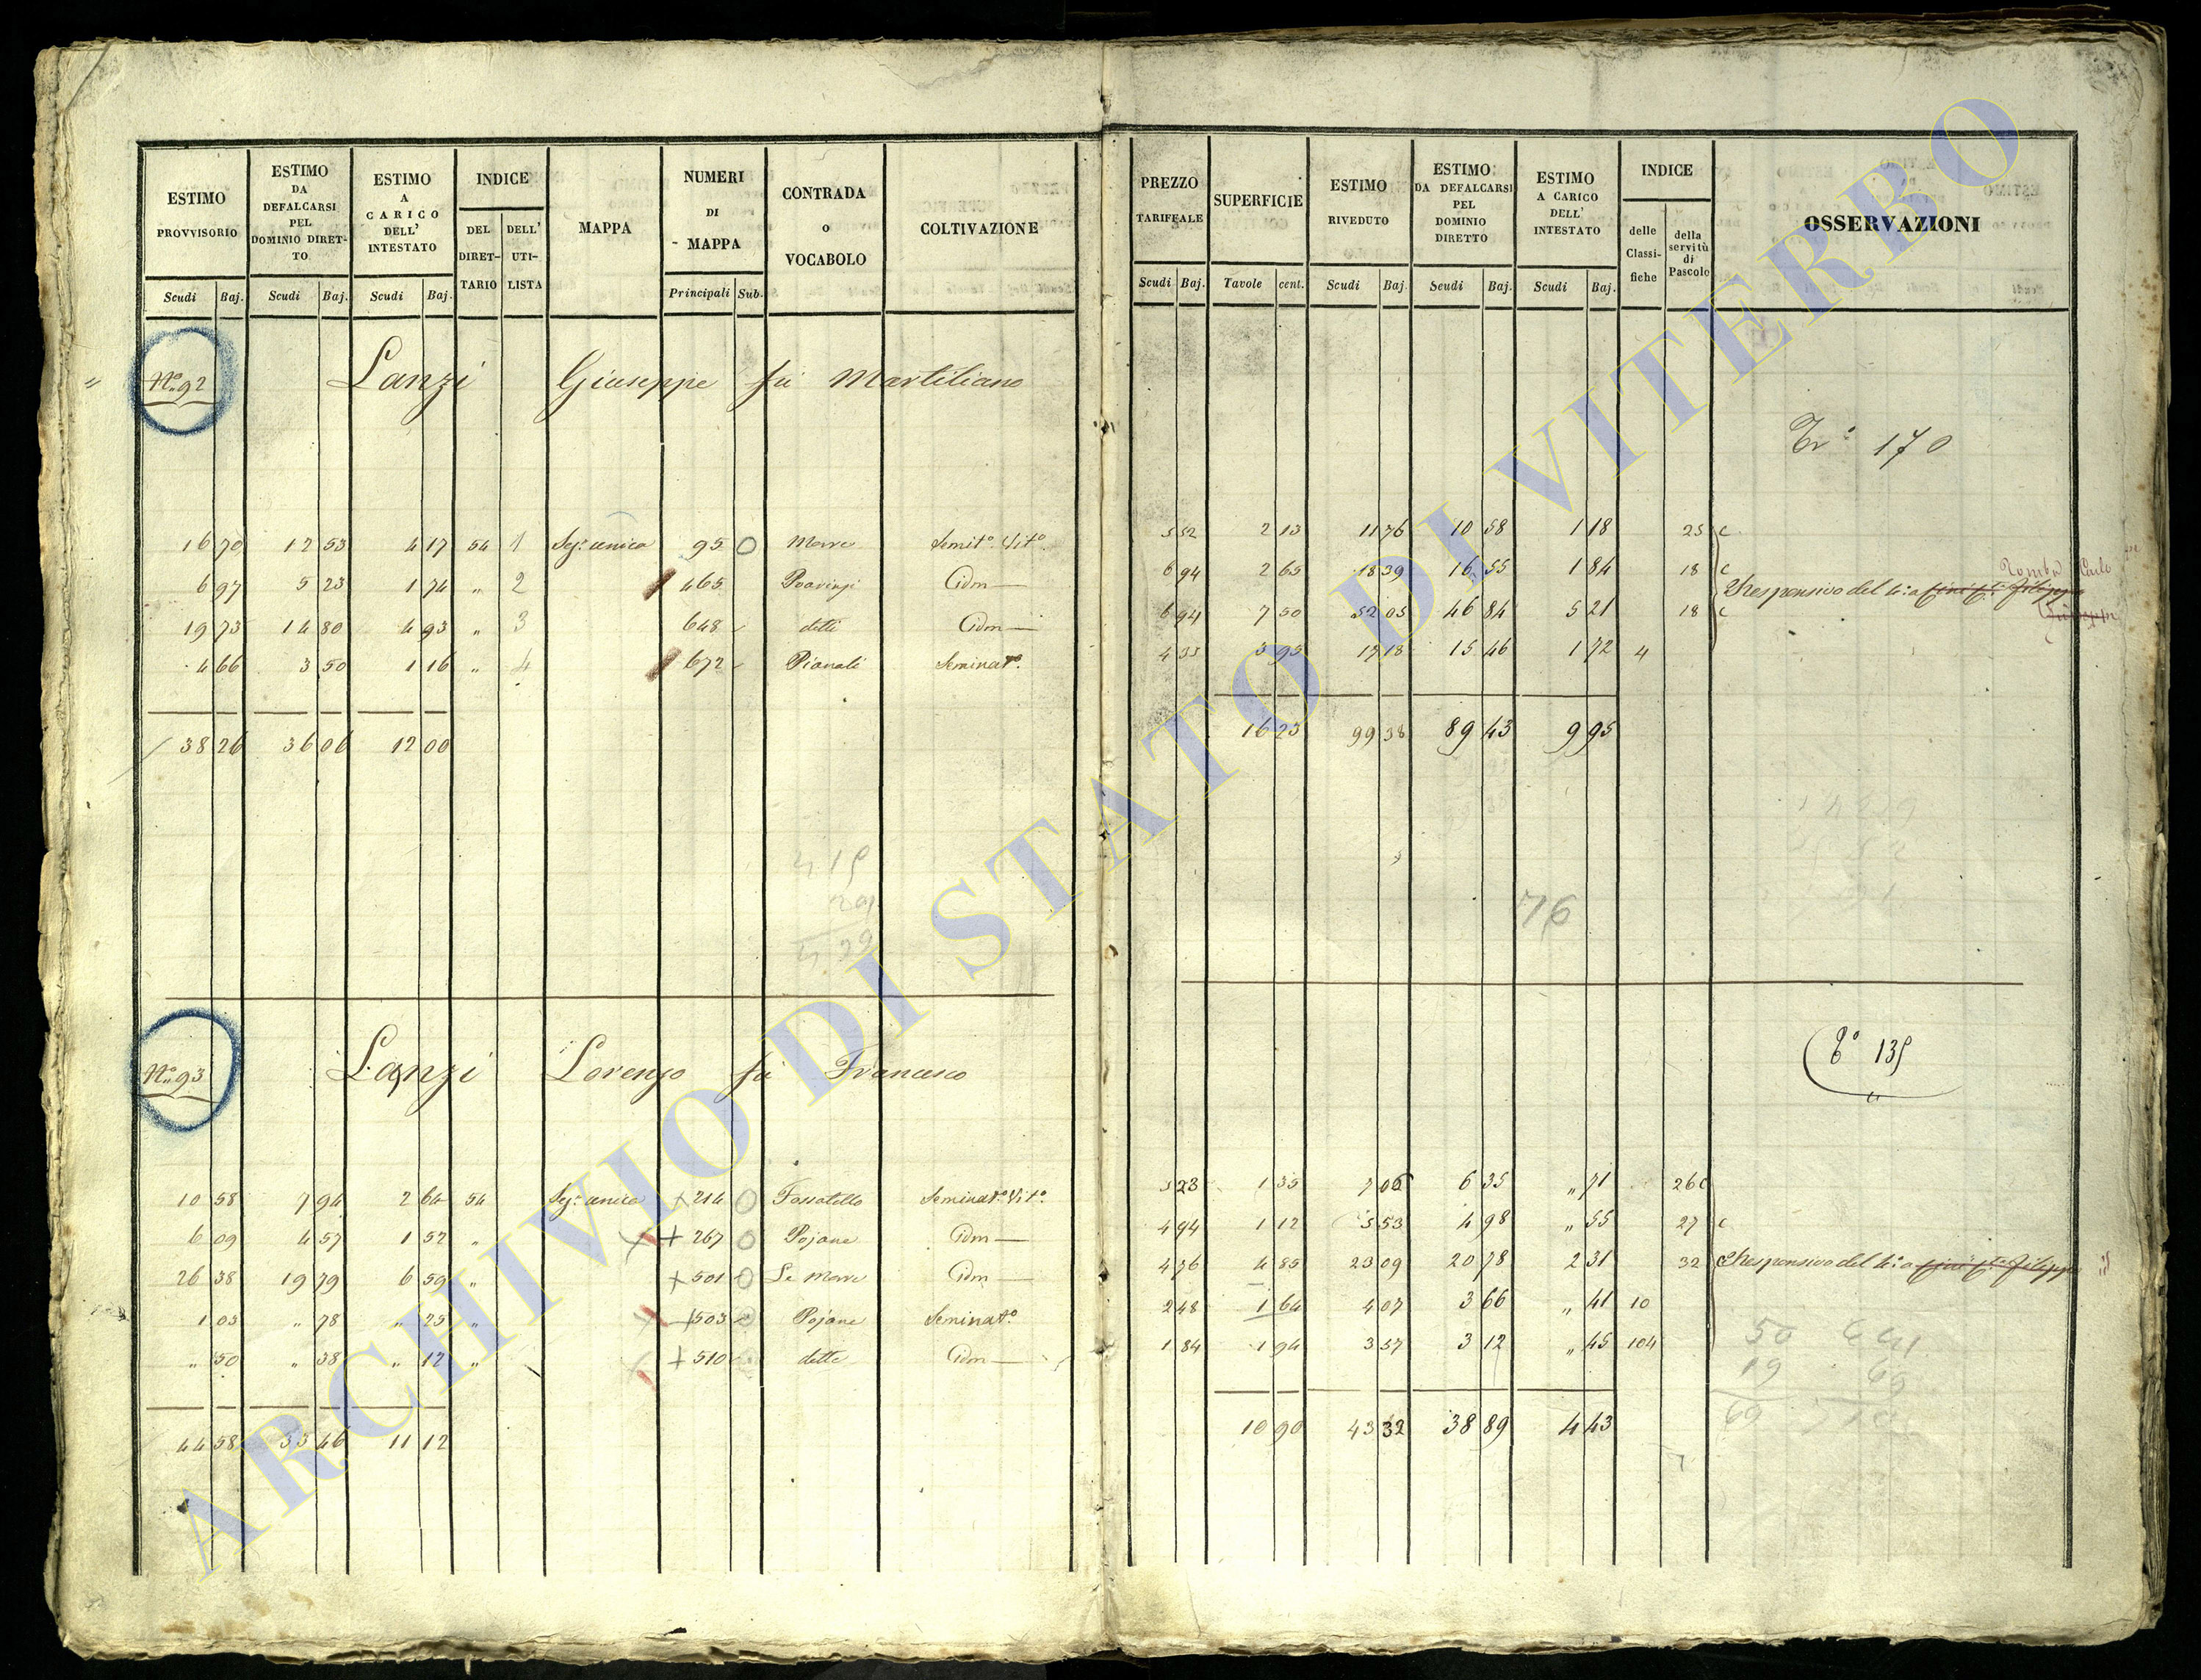 ESTIMO PROVVISORIO Scudi Baj.
ESTIMO DA DEFALCARSI PEL DOMINIO DIRETTO Scudi Baj.
ESTIMO A CARICO DELL' INTESTATO Scudi Baj.
INDICE DEL DIRETTARIO DELL' UTILISTA
MAPPA
NUMERI DI MAPPA Principali Sub.
CONTRADA o VOCABOLO
COLTIVAZIONE
PREZZO TARIFFALE Scudi Baj.
SUPERFICIE Tavole cent.
ESTIMO RIVEDUTO Scudi Baj.
ESTIMO DA DEFALCARSI PEL DOMINIO DIRETTO Scudi Baj.
ESTIMO A CARICO DELL' INTESTATO Scudi Baj.
INDICE delle Classifiche della servitù di Pascolo
OSSERVAZIONI
N.o 92 Lanzi Giuseppe fu Martiliano
170
16 70 12 53 4 17 54 1 Sez.e unica 95 0 Morre Semit.o Vit.o 5 52 2 13 11 76 10 58 1 18 25 c
6 97 5 23 1 74 " 2 465 Idm 6 94 2 65 18 39 16 55 1 84 18 c
Responsivo del 4:o
19 73 14 80 4 93 " 3 648 detti Idm 6 94 7 50 52 05 46 84 5 21 18 c
4 66 3 50 1 16 " 4 672 Pianali Seminat.o 4 35 3 95 17 18 15 46 1 72 4
38 26 36 06 12 00 16 23 99 38 89 43 9 95
76
N.o 93 Lanzi Lorenzo fu Francesco
135
10 58 7 94 2 64 54 Sez.e unica + 214 0 Fossatello Seminat.o Vit.o 5 23 1 35 7 06 6 35 " 71 26 c
6 09 4 57 1 52 " + 267 0 Pojane Idm 4 94 1 12 5 53 4 98 " 55 27 c
26 38 19 79 6 59 " + 501 0 Le Morre Idm 4 76 4 85 23 09 20 78 2 31 32 c Responsivo del 4:o
1 03 " 78 " 25 " + 503 Pojane Seminat.o 2 48 1 64 4 07 3 66 " 41 10
" 50 " 38 " 12 " + 510 dette Idm 1 84 1 94 3 57 3 12 " 45 104
44 58 33 46 11 12 10 90 43 32 38 89 4 43
50
19
69
ARCHIVIO DI STATO DI VITERBO